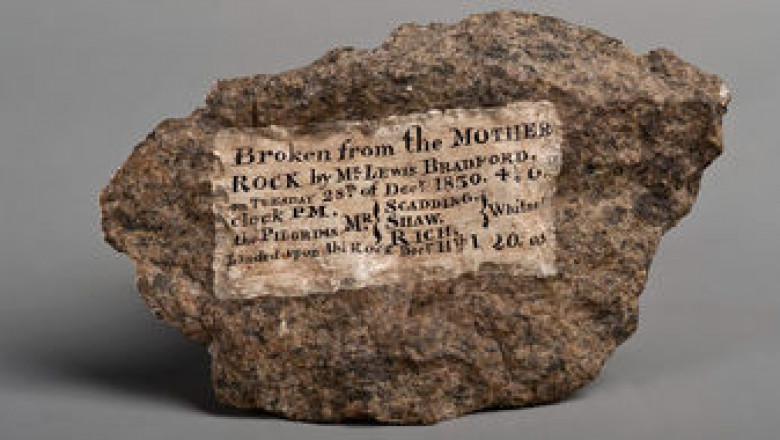 Broken from the MOTHER
ROCK by Mr. LEWIS BRADFORD.
on TUESDAY 28th of Decr. 1850. 4½ O.
clock P.M. { SCADDING.
the PILGRIMS MR { SHAW. }
{ RICH.
Landed upon this Rock Decr. 11th 1 20. os